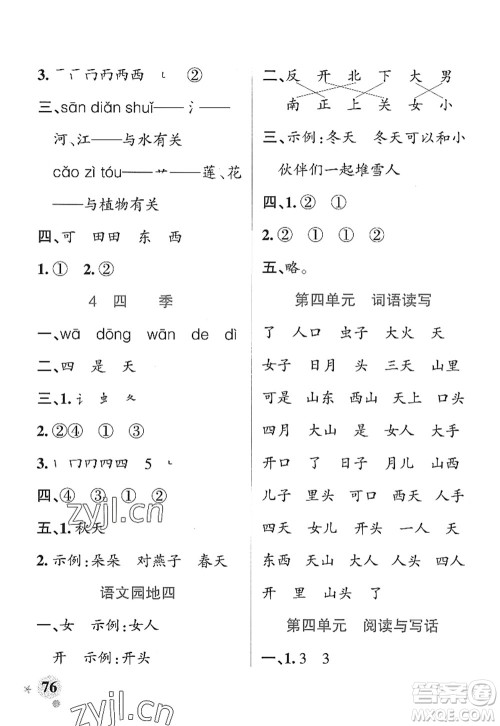 3. 一 丆 丙 丙 西 西 ㇄ ②
三、sān diǎn shuǐ——氵——
河、江——与水有关
cǎo zì tóu——艹——莲、花
——与植物有关
四、可 田田 东 西
1.① 2.②
4 四 季
一、wā dōng wān de dì
二、四 是 天
三、1.讠 虫 夂
2.②④ ① ② ③
3.丨 冂 冂 四 四 5 ㇄
四、④ ③ ① ②
五、1.秋天
2. 示例:朵朵 对燕子 春天
语文园地四
一、女 示例:女儿
开 示例:开头
76
二、反 开 北 下 大 男
南 正 上 关 女 小
三、示例:冬天 冬天可以和小
伙伴们一起堆雪人
四、1.② ①
2.① ② ② ①
五、略。
第四单元 词语读写
了 人口 虫子 大火 天
女子 月头 三天 是 山里
可是 东 西山 西天 山头
四月 大山 是 了 大手
儿子 里头 山西 大 人手
去 女儿 开口 飞虫 人
东西 天子 大人 飞 天山
开 里 山子 开头
第四单元 阅读与写话
一、1.3 3
zyjl.cn
zyjl.cn
答案圈
MXQE.COM